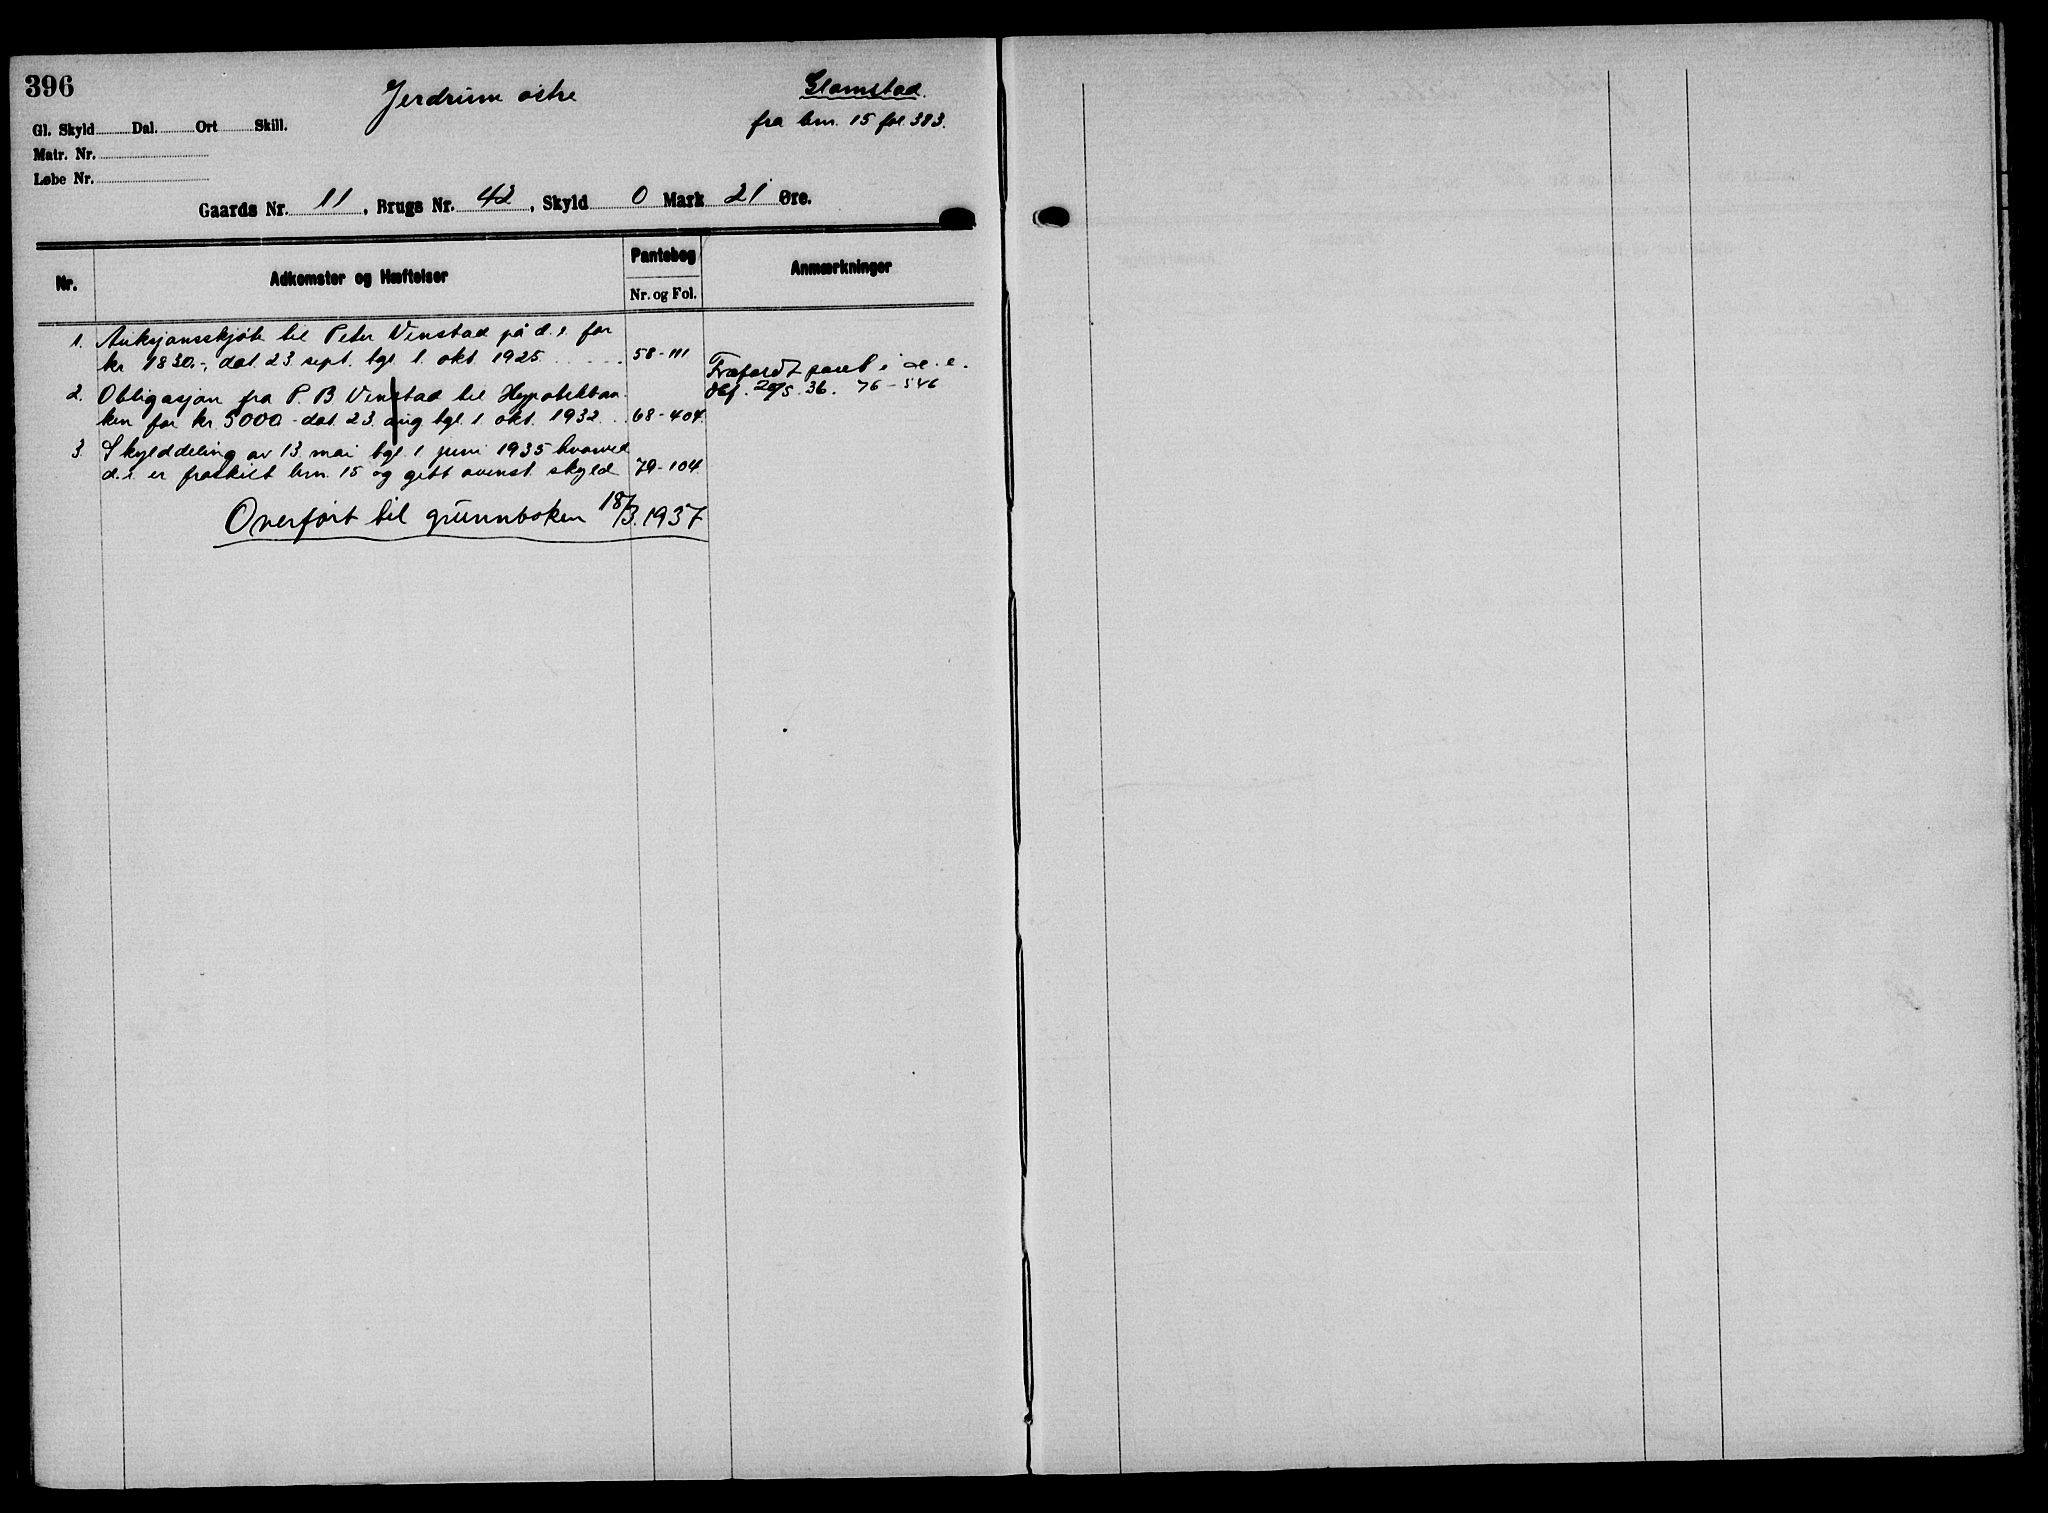 396
Jerdrum østre
Glamstad.
fra brn. 15 fol 383.
Gl. Skyld Dal. Ort Skill.
Matr. Nr.
Løbe Nr.
Gaards Nr. 11, Brugs Nr. 42, Skyld 0 Mark 21 Øre.
Nr.
Adkomster og Hæftelser
Pantebog
Nr. og Fol.
Anmærkninger
1. Auksjonsskjøte til Peter Venstad på d. e. for
kr 1830.-, dat. 23 sept. tgl. 1. okt 1925. 58-111
2. Obligasjon fra P. B Venstad til Hypotekban
ken for kr 5000 - dat. 23. aug tgl. 1 okt. 1932. 68-404.
3. Skylddeling av 13 mai tgl. 1 juni 1935 hvorved
d. e. er fraskilt brn. 15 og gitt ovenst. skyld 74-104
parel i d. e.
dgf. 20/5. 36. 76-546
Overført til grunnboken 18/3. 1937